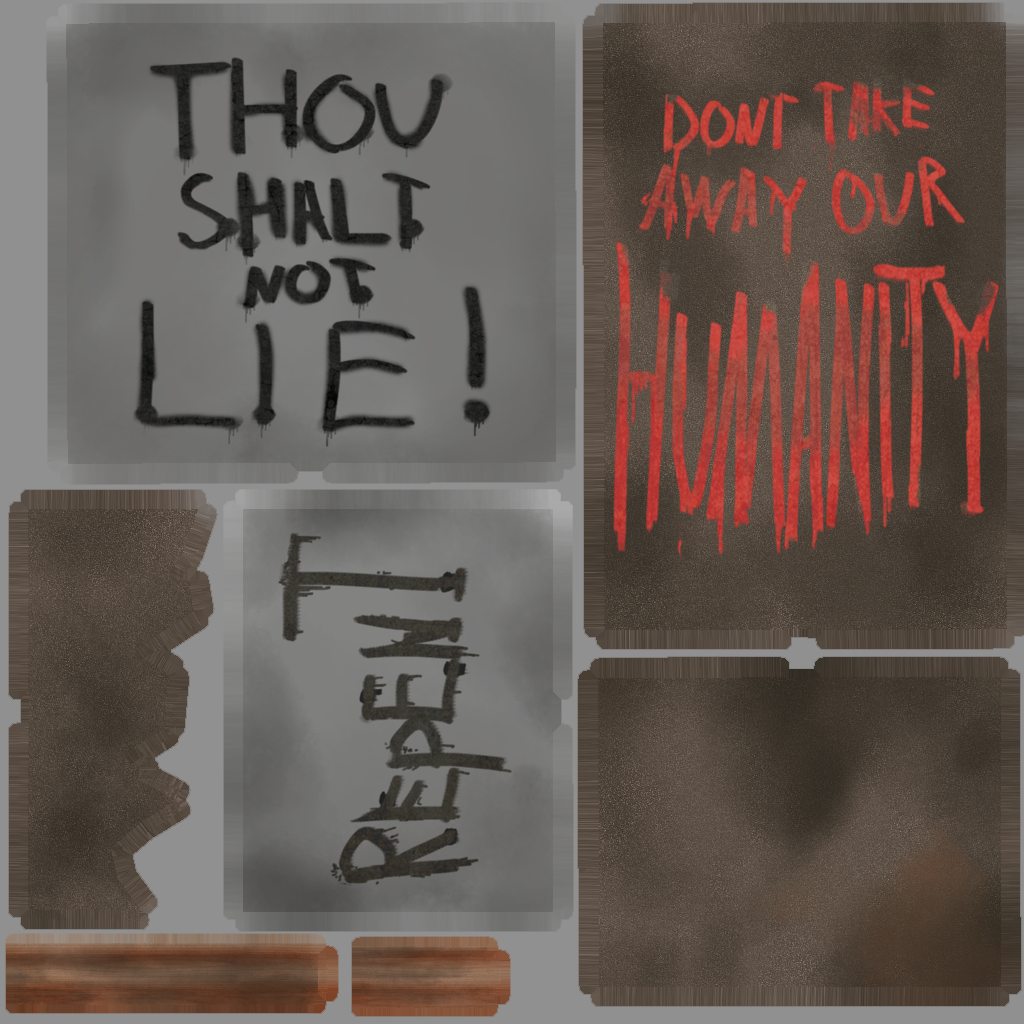 THOU
SHALT
NOT
LIE!
DONT TAKE
AWAY OUR
HUMANITY
REPENT